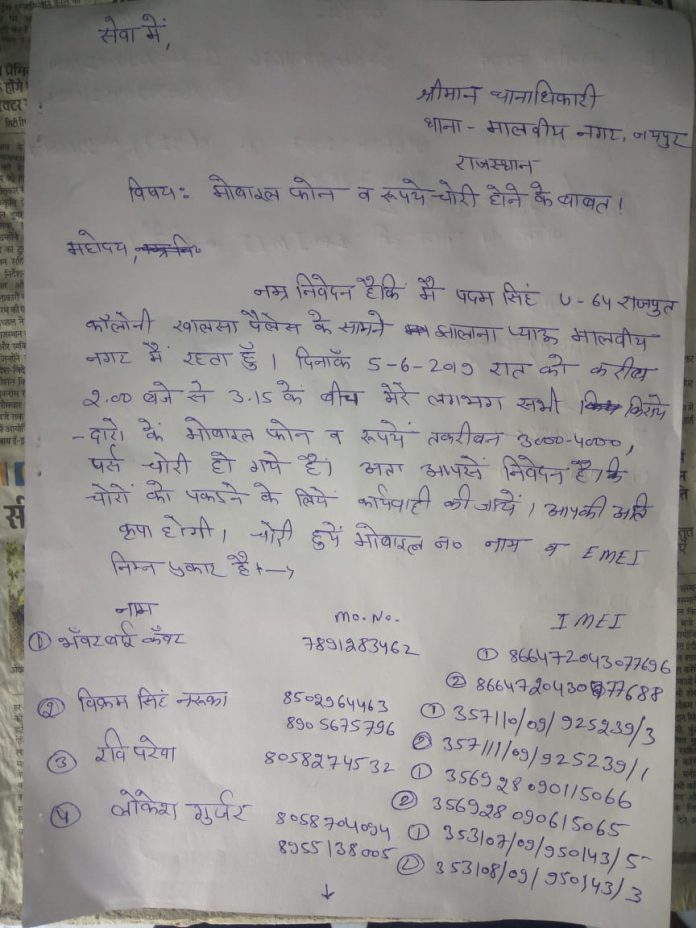 सेवा में,
श्रीमान थानाधिकारी
थाना - मालवीय नगर, जयपुर
राजस्थान
विषय: मोबाइल फोन व रूपये चोरी होने के बाबत।
महोदय,
नम्र निवेदन है कि मै पदम सिंह U-64 राजपुत
कॉलोनी खालसा पैलेस के सामने झालाना प्याऊ मालवीय
नगर में रहता हुँ। दिनाँक 5-6-2019 रात को करीब
2.00 बजे से 3.15 के बीच मेरे लगभग सभी किराये
-दारो के मोबाइल फोन व रूपयें तकरीबन 3000-4000,
पर्स चोरी हो गये है। अतः आपसे निवेदन है कि
चोरों को पकडने के लिये कार्यवाही की जायें। आपकी अति
कृपा होगी। चोरी हुयें मोबाइल न० नाम व EMEI
निम्न प्रकार है
नाम mo. No. IMEI
① भँवर बाई कँवर 7891283462 ① 866472043077696
② 866472043077688
② विक्रम सिंह नरूका 8502964463 ① 357110/09/925239/3
8905675796 ② 357111/09/925239/1
③ रवि परेवा 8058274532 ① 356928090115066
② 356928090615065
④ लोकेश गुर्जर 8058704094 ① 353107/09/950143/5
8955138005 ② 353108/09/950143/3